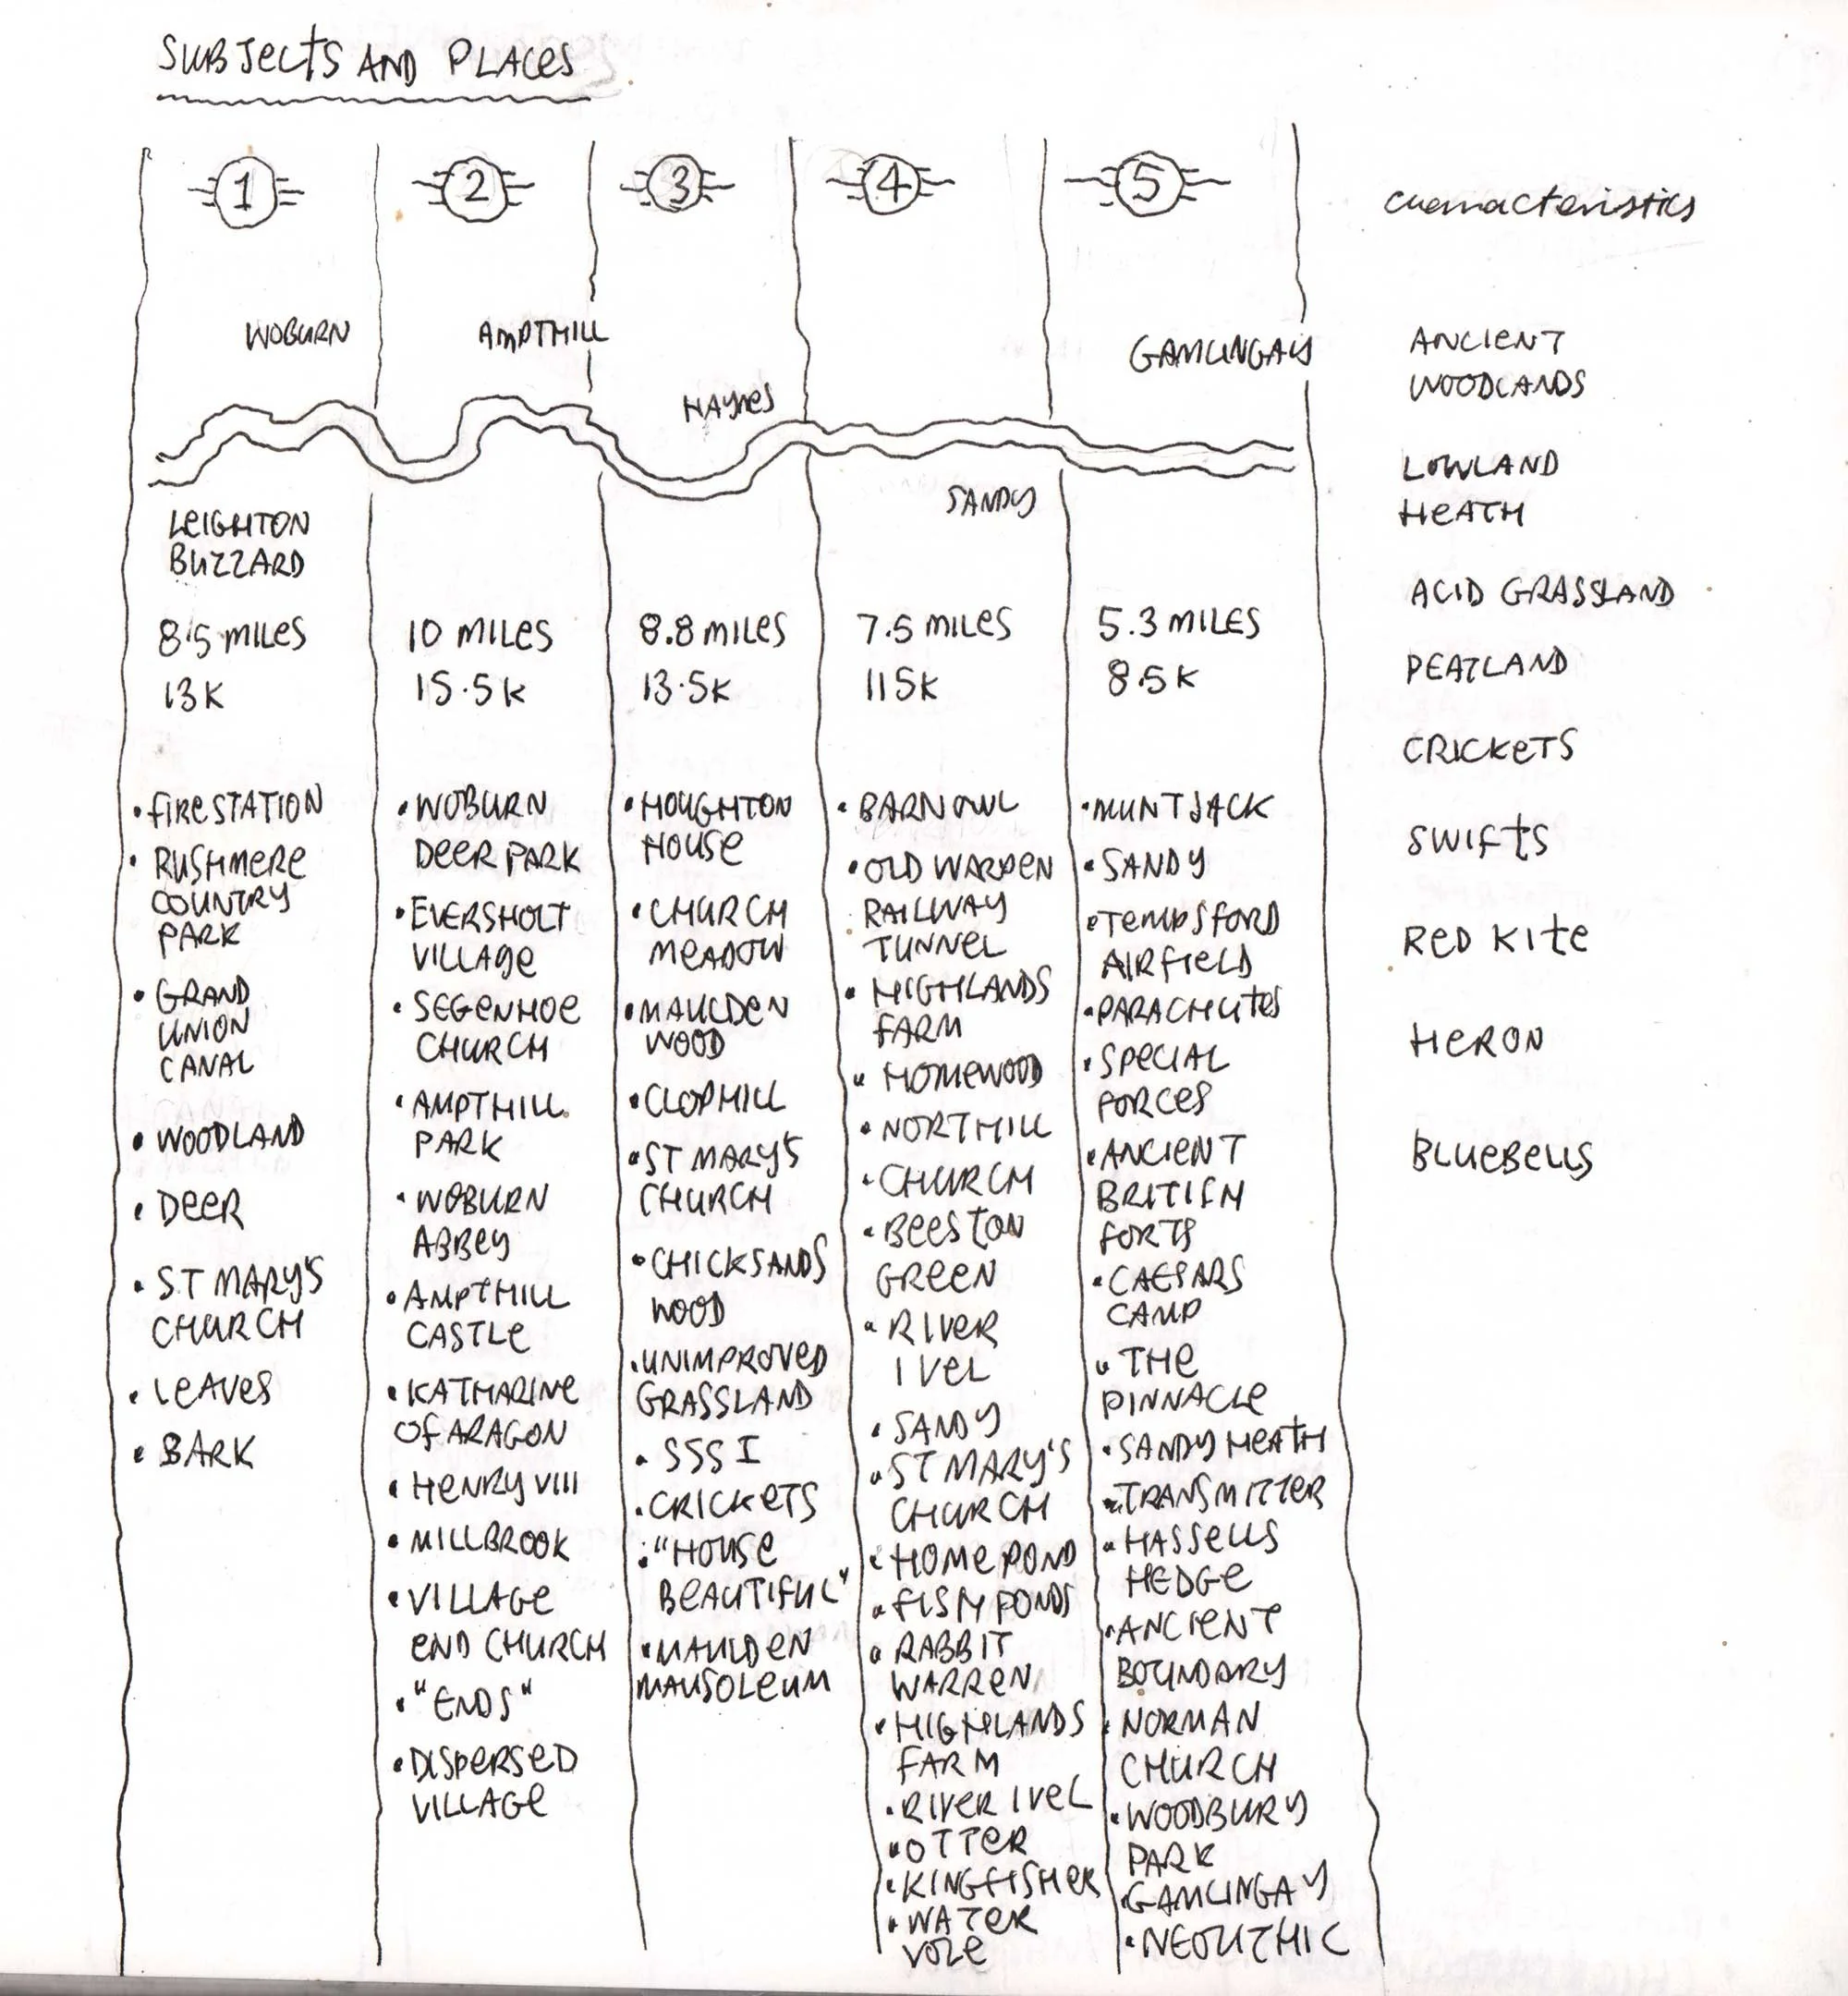 SUBJECTS AND PLACES
1
2
3
4
5
characteristics
WOBURN
AMPTHILL
HAYNES
GAMLINGAY
LEIGHTON
BUZZARD
SANDY
8.5 MILES
13K
10 MILES
15.5K
8.8 MILES
13.5K
7.5 MILES
115K
5.3 MILES
8.5K
• FIRE STATION
• RUSHMERE
COUNTRY
PARK
• GRAND
UNION
CANAL
• WOODLAND
• DEER
• ST MARY'S
CHURCH
• LEAVES
• BARK
• WOBURN
DEER PARK
• EVERSHOLT
VILLAGE
• SEGENHOE
CHURCH
• AMPTHILL
PARK
• WOBURN
ABBEY
• AMPTHILL
CASTLE
• KATHARINE
OF ARAGON
• HENRY VIII
• MILLBROOK
• VILLAGE
END CHURCH
• "ENDS"
• DISPERSED
VILLAGE
• HOUGHTON
HOUSE
• CHURCH
MEADOW
• MAULDEN
WOOD
• CLOPHILL
• ST MARY'S
CHURCH
• CHICKSANDS
WOOD
• UNIMPROVED
GRASSLAND
• SSSI
• CRICKETS
• "HOUSE
BEAUTIFUL"
• MAULDEN
MAUSOLEUM
• BARN OWL
• OLD WARDEN
RAILWAY
TUNNEL
• HIGHLANDS
FARM
• HOMEWOOD
• NORTHILL
• CHURCH
• BEESTON
GREEN
• RIVER
IVEL
• SANDY
• ST MARY'S
CHURCH
• HOME POND
• FISH PONDS
• RABBIT
WARREN
• HIGHLANDS
FARM
• RIVER IVEL
• OTTER
• KINGFISHER
• WATER
VOLE
• MUNTJACK
• SANDY
• TEMPSFORD
AIRFIELD
• PARACHUTES
• SPECIAL
FORCES
• ANCIENT
BRITISH
FORTS
• CAESARS
CAMP
• THE
PINNACLE
• SANDY HEATH
• TRANSMITTER
• HASSELLS
HEDGE
• ANCIENT
BOUNDARY
• NORMAN
CHURCH
• WOODBURY
PARK
• GAMLINGAY
• NEOLITHIC
ANCIENT
WOODLANDS
LOWLAND
HEATH
ACID GRASSLAND
PEATLAND
CRICKETS
SWIFTS
RED KITE
HERON
BLUEBELLS